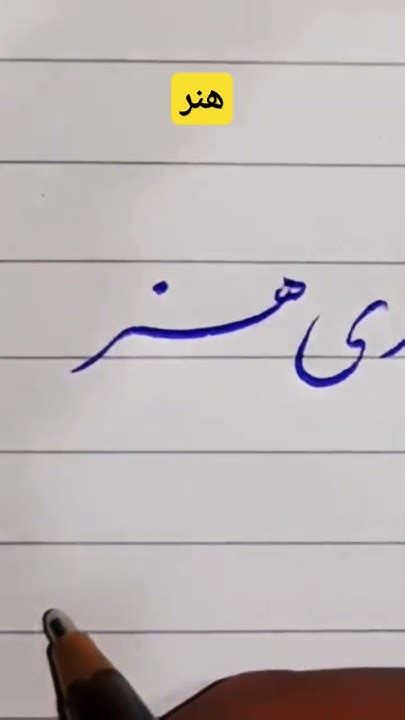 هنر
ری هنر